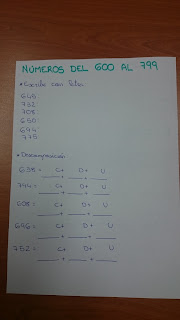 NÚMEROS DEL 600 AL 799
• Escribe con letra
645
762
708
650
694
775
• Descomposición
638 = C+ D+ U
___ + ___ + ___
794 = C+ D+ U
___ + ___ + ___
608 = C+ D+ U
___ + ___ + ___
696 = C+ D+ U
___ + ___ + ___
752 = C+ D+ U
___ + ___ + ___